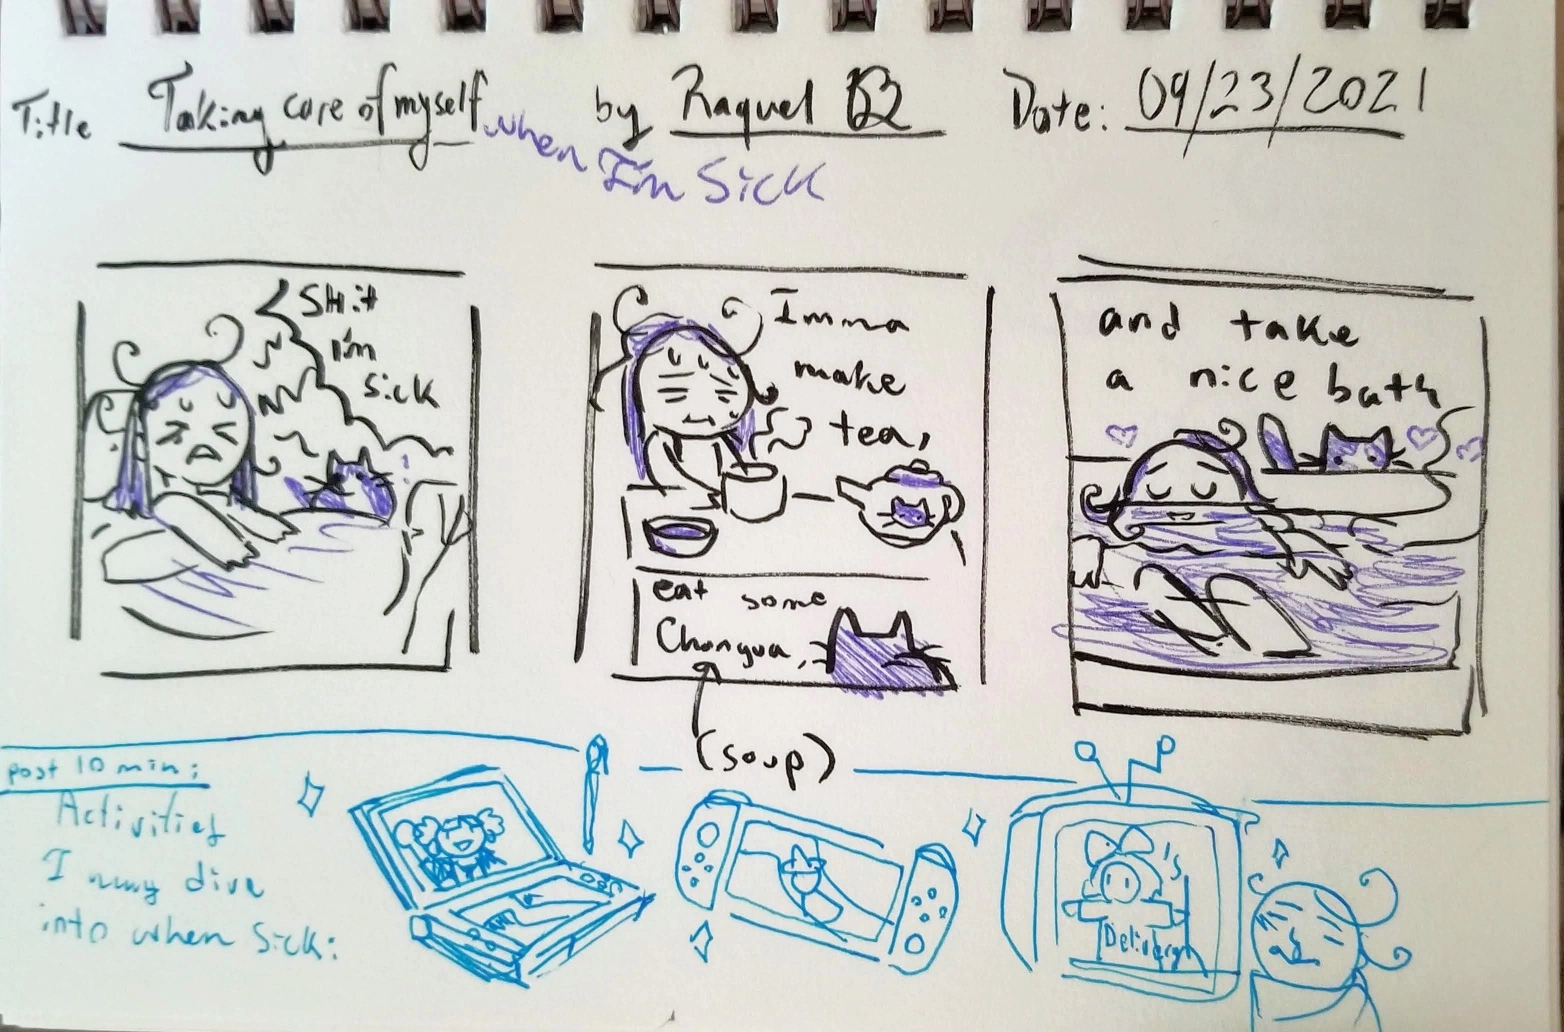 Title Taking care of myself by Raquel Date: 09/23/2021
when I'm Sick
Shit
I'm
sick
Imma
make
tea,
eat some
Chongua,
(soup)
and take
a nice bath
post 10 min:
Activities
I may dive
into when Sick:
's
Delivery